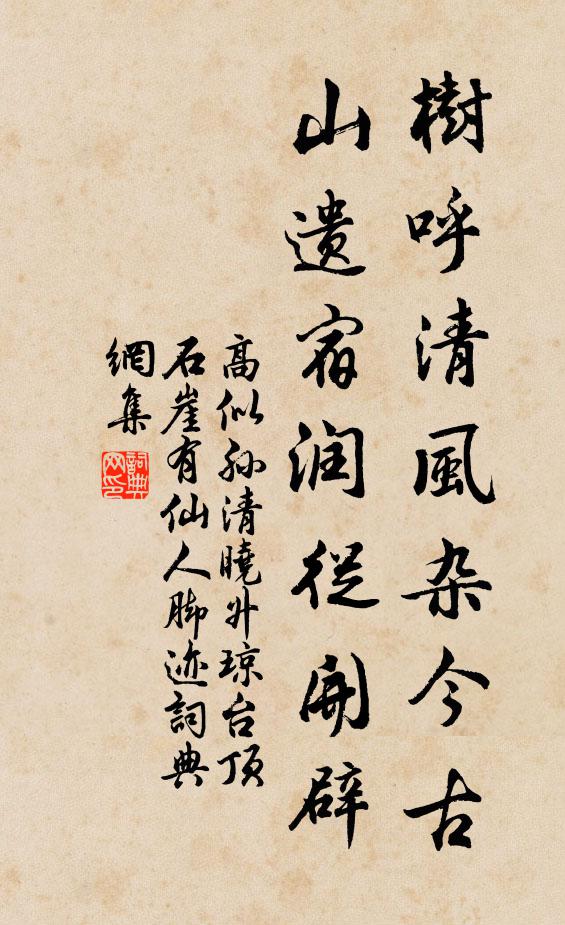 樹呼清風杂今古
山遗宿润從開辟
高似孙清曉升琼台頂
石崖有仙人脚迹詞典
網集
詞典网印